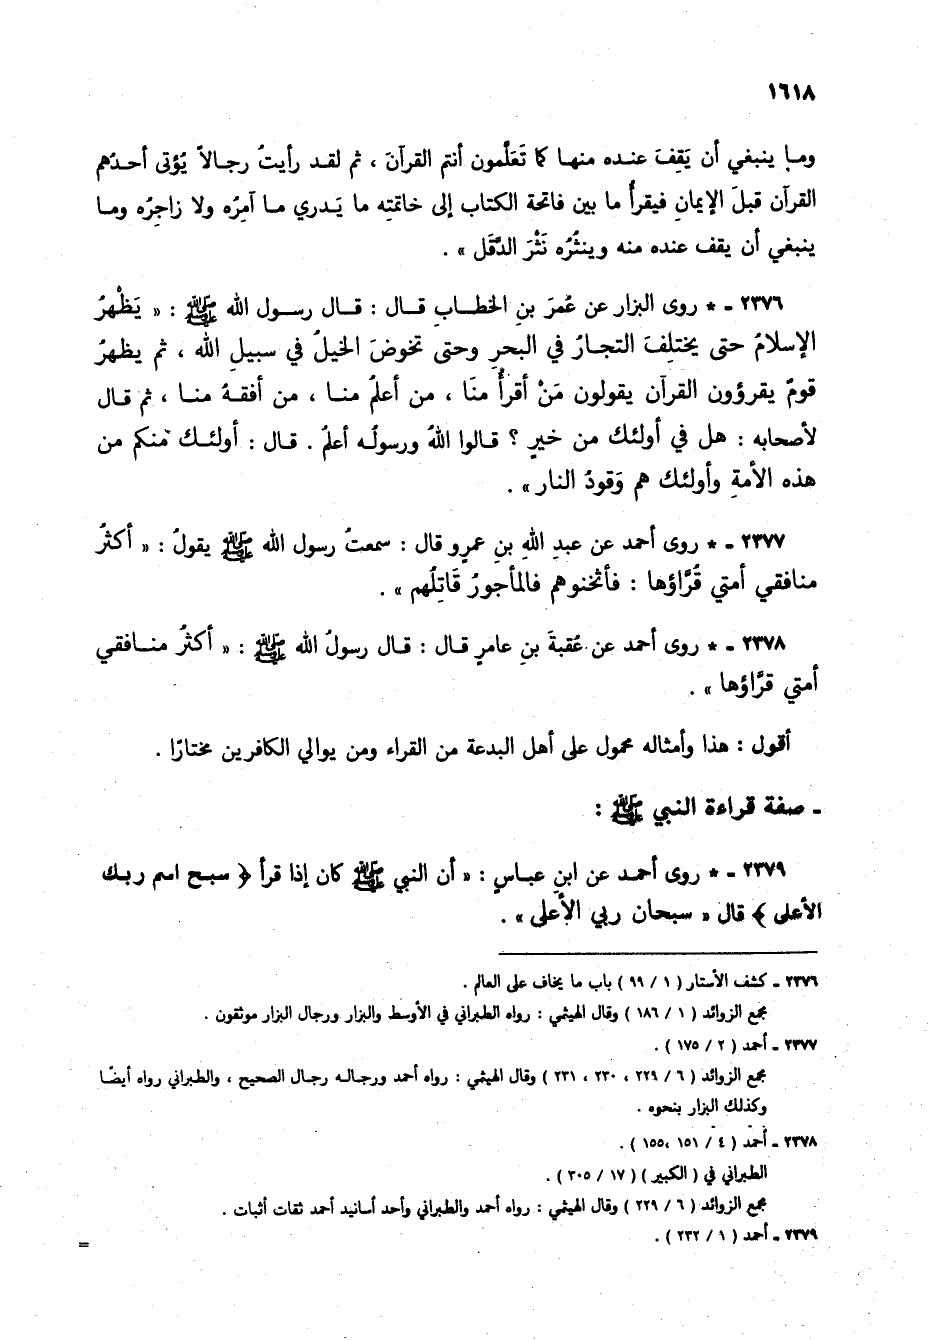 ١٦١٨
وما ينبغي أن يَقِفَ عنده منها كما تَعَلَّمون أنتم القرآنَ ، ثم لقد رأيتُ رجالاً يُؤتى أحدُهم
القرآن قبلَ الإيمانِ فيقرأُ ما بين فاتحة الكتاب إلى خاتمتِه ما يَدري ما آمِرُه ولا زاجِرُه وما
ينبغي أن يقف عنده منه وينثُرُه نَثْرَ الدَّقَل » .
٢٣٧٦ ـ * روى البزار عن عُمَرَ بنِ الخطابِ قال : قال رسول الله ﷺ : « يَظْهرُ
الإسلامُ حتى يختلِفَ التجارُ في البحرِ وحتى تخوضَ الخيلُ في سبيلِ الله ، ثم يظهرُ
قومٌ يقرؤون القرآن يقولون مَنْ أقرأُ منَا ، من أعلمُ منا ، من أفقهُ منا ، ثم قال
لأصحابه : هل في أولئك من خيرٍ ؟ قالوا اللهُ ورسولُه أعلمُ . قال : أولئك منكم من
هذه الأمةِ وأولئك هم وَقودُ النار » .
٢٣٧٧ ـ * روى أحمد عن عبدِ اللهِ بنِ عمرٍو قال : سمعتُ رسول الله ﷺ يقولُ : « أكثرُ
منافقي أمتي قُرَّاؤها : فأثخنوهم فالمأجورُ قَاتِلُهم » .
٢٣٧٨ ـ * روى أحمد عن عُقبةَ بنِ عامرٍ قال : قال رسولُ الله ﷺ : « أكثرُ منافقي
أمتي قرَّاؤها » .
أقول : هذا وأمثاله محمول على أهل البدعة من القراء ومن يوالي الكافرين مختارًا .
ـ صفة قراءة النبي ﷺ :
٢٣٧٩ ـ * روى أحمد عن ابنِ عباسٍ : « أن النبي ﷺ كان إذا قرأ ﴿ سبح اسم ربك
الأعلى ﴾ قال « سبحان ربي الأعلى » .
٢٣٧٦ ـ كشف الأستار ( ١ / ٩٩ ) باب ما يخاف على العالم .
مجمع الزوائد ( ١ / ١٨٦ ) وقال الهيثمي : رواه الطبراني في الأوسط والبزار ورجال البزار موثقون .
٢٣٧٧ ـ أحمد ( ٢ / ١٧٥ ) .
مجمع الزوائد ( ٦ / ٢٢٩ ، ٢٣٠ ، ٢٣١ ) وقال الهيثمي : رواه أحمد ورجاله رجال الصحيح ، والطبراني رواه أيضًا
وكذلك البزار بنحوه .
٢٣٧٨ ـ أحمد ( ٤ / ١٥١ ،١٥٥ ) .
الطبراني في ( الكبير ) ( ١٧ / ٣٠٥ ) .
مجمع الزوائد ( ٦ / ٢٢٩ ) وقال الهيثمي : رواه أحمد والطبراني وأحد أسانيد أحمد ثقات أثبات .
٢٣٧٩ ـ أحمد ( ١ / ٢٣٢ ) .
=